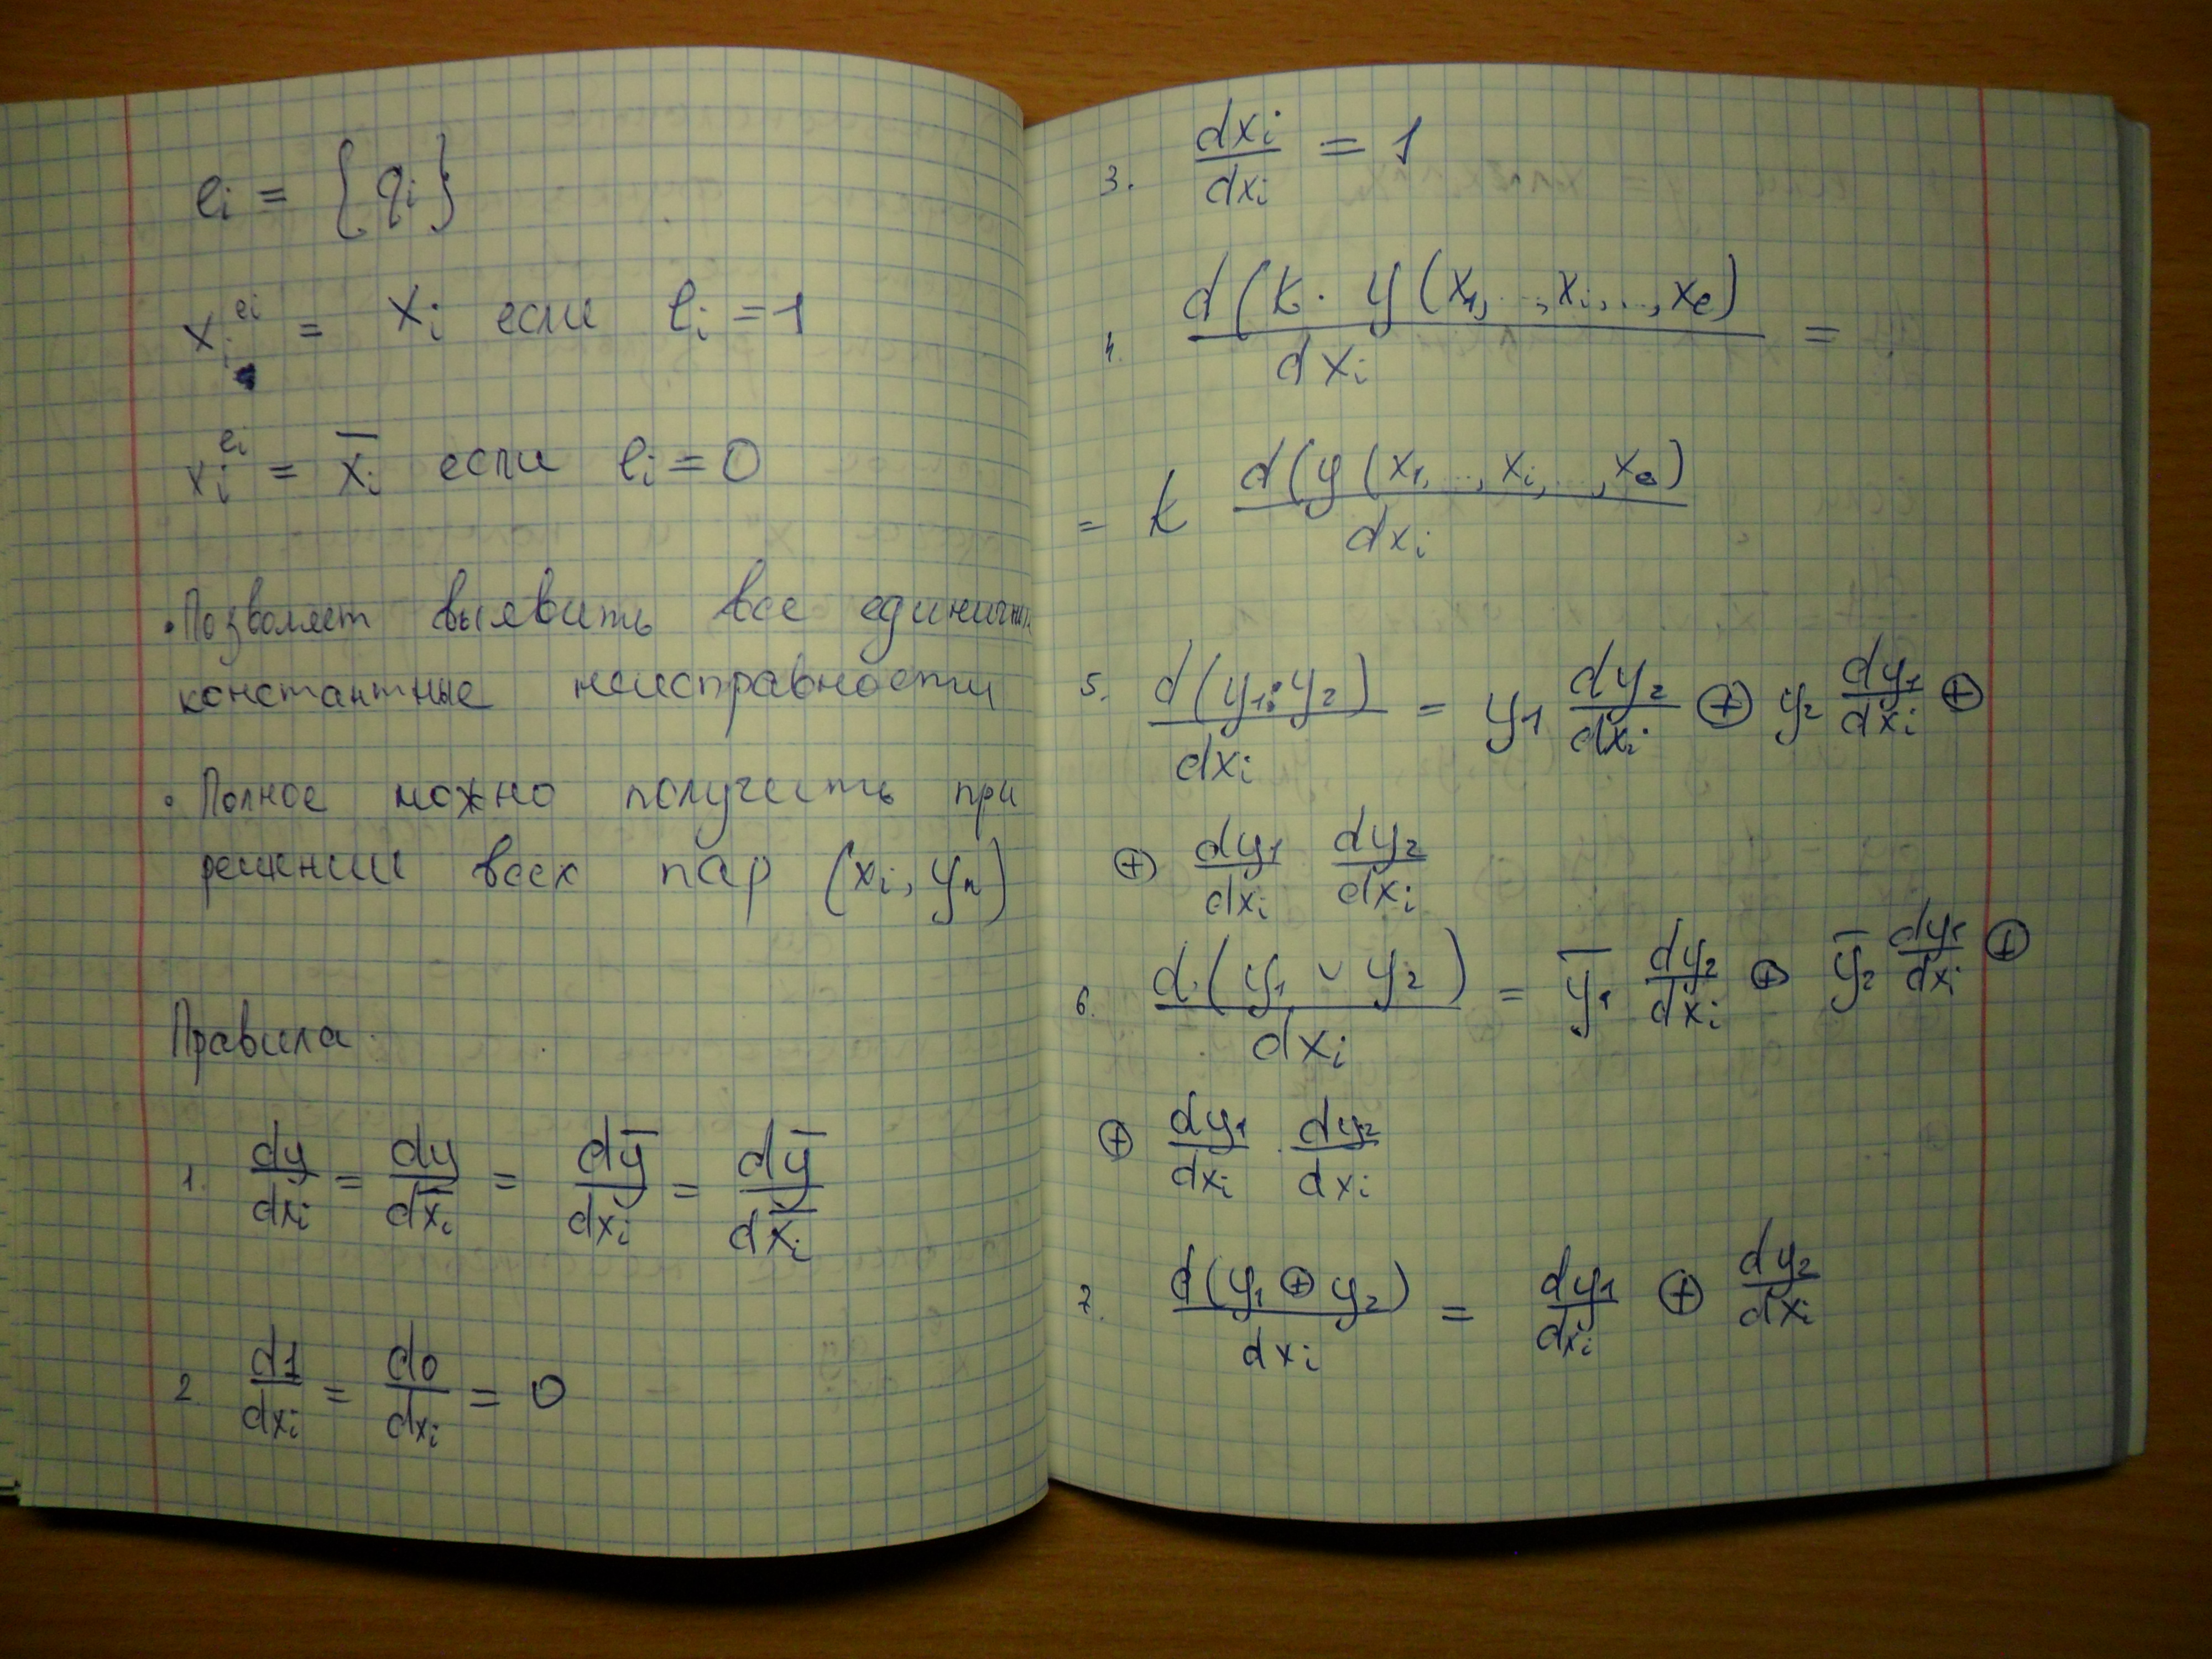 eᵢ = {qᵢ}
xᵢ^eᵢ = xᵢ если eᵢ = 1
xᵢ^eᵢ = x̅ᵢ если eᵢ = 0
• Позволяет выявить все единичн
константные неисправности
• Полное можно получить при
решении всех пар (xᵢ, yₙ)
Правила
1. dy/dxᵢ = dy/dx̅ᵢ = dy̅/dxᵢ = dy̅/dx̅ᵢ
2. d1/dxᵢ = d0/dxᵢ = 0
3. dxᵢ/dxᵢ = 1
4. d(k · y(x₁, .., xᵢ, .., xₑ)/dxᵢ =
= k d(y(x₁, .., xᵢ, .., xₑ)/dxᵢ
5. d(y₁ · y₂)/dxᵢ = y₁ dy₂/dxᵢ ⊕ y₂ dy₁/dxᵢ ⊕
⊕ dy₁/dxᵢ dy₂/dxᵢ
6. d(y₁ ∨ y₂)/dxᵢ = y̅₁ dy₂/dxᵢ ⊕ y̅₂ dy₁/dxᵢ ⊕
⊕ dy₁/dxᵢ · dy₂/dxᵢ
7. d(y₁ ⊕ y₂)/dxᵢ = dy₁/dxᵢ ⊕ dy₂/dxᵢ